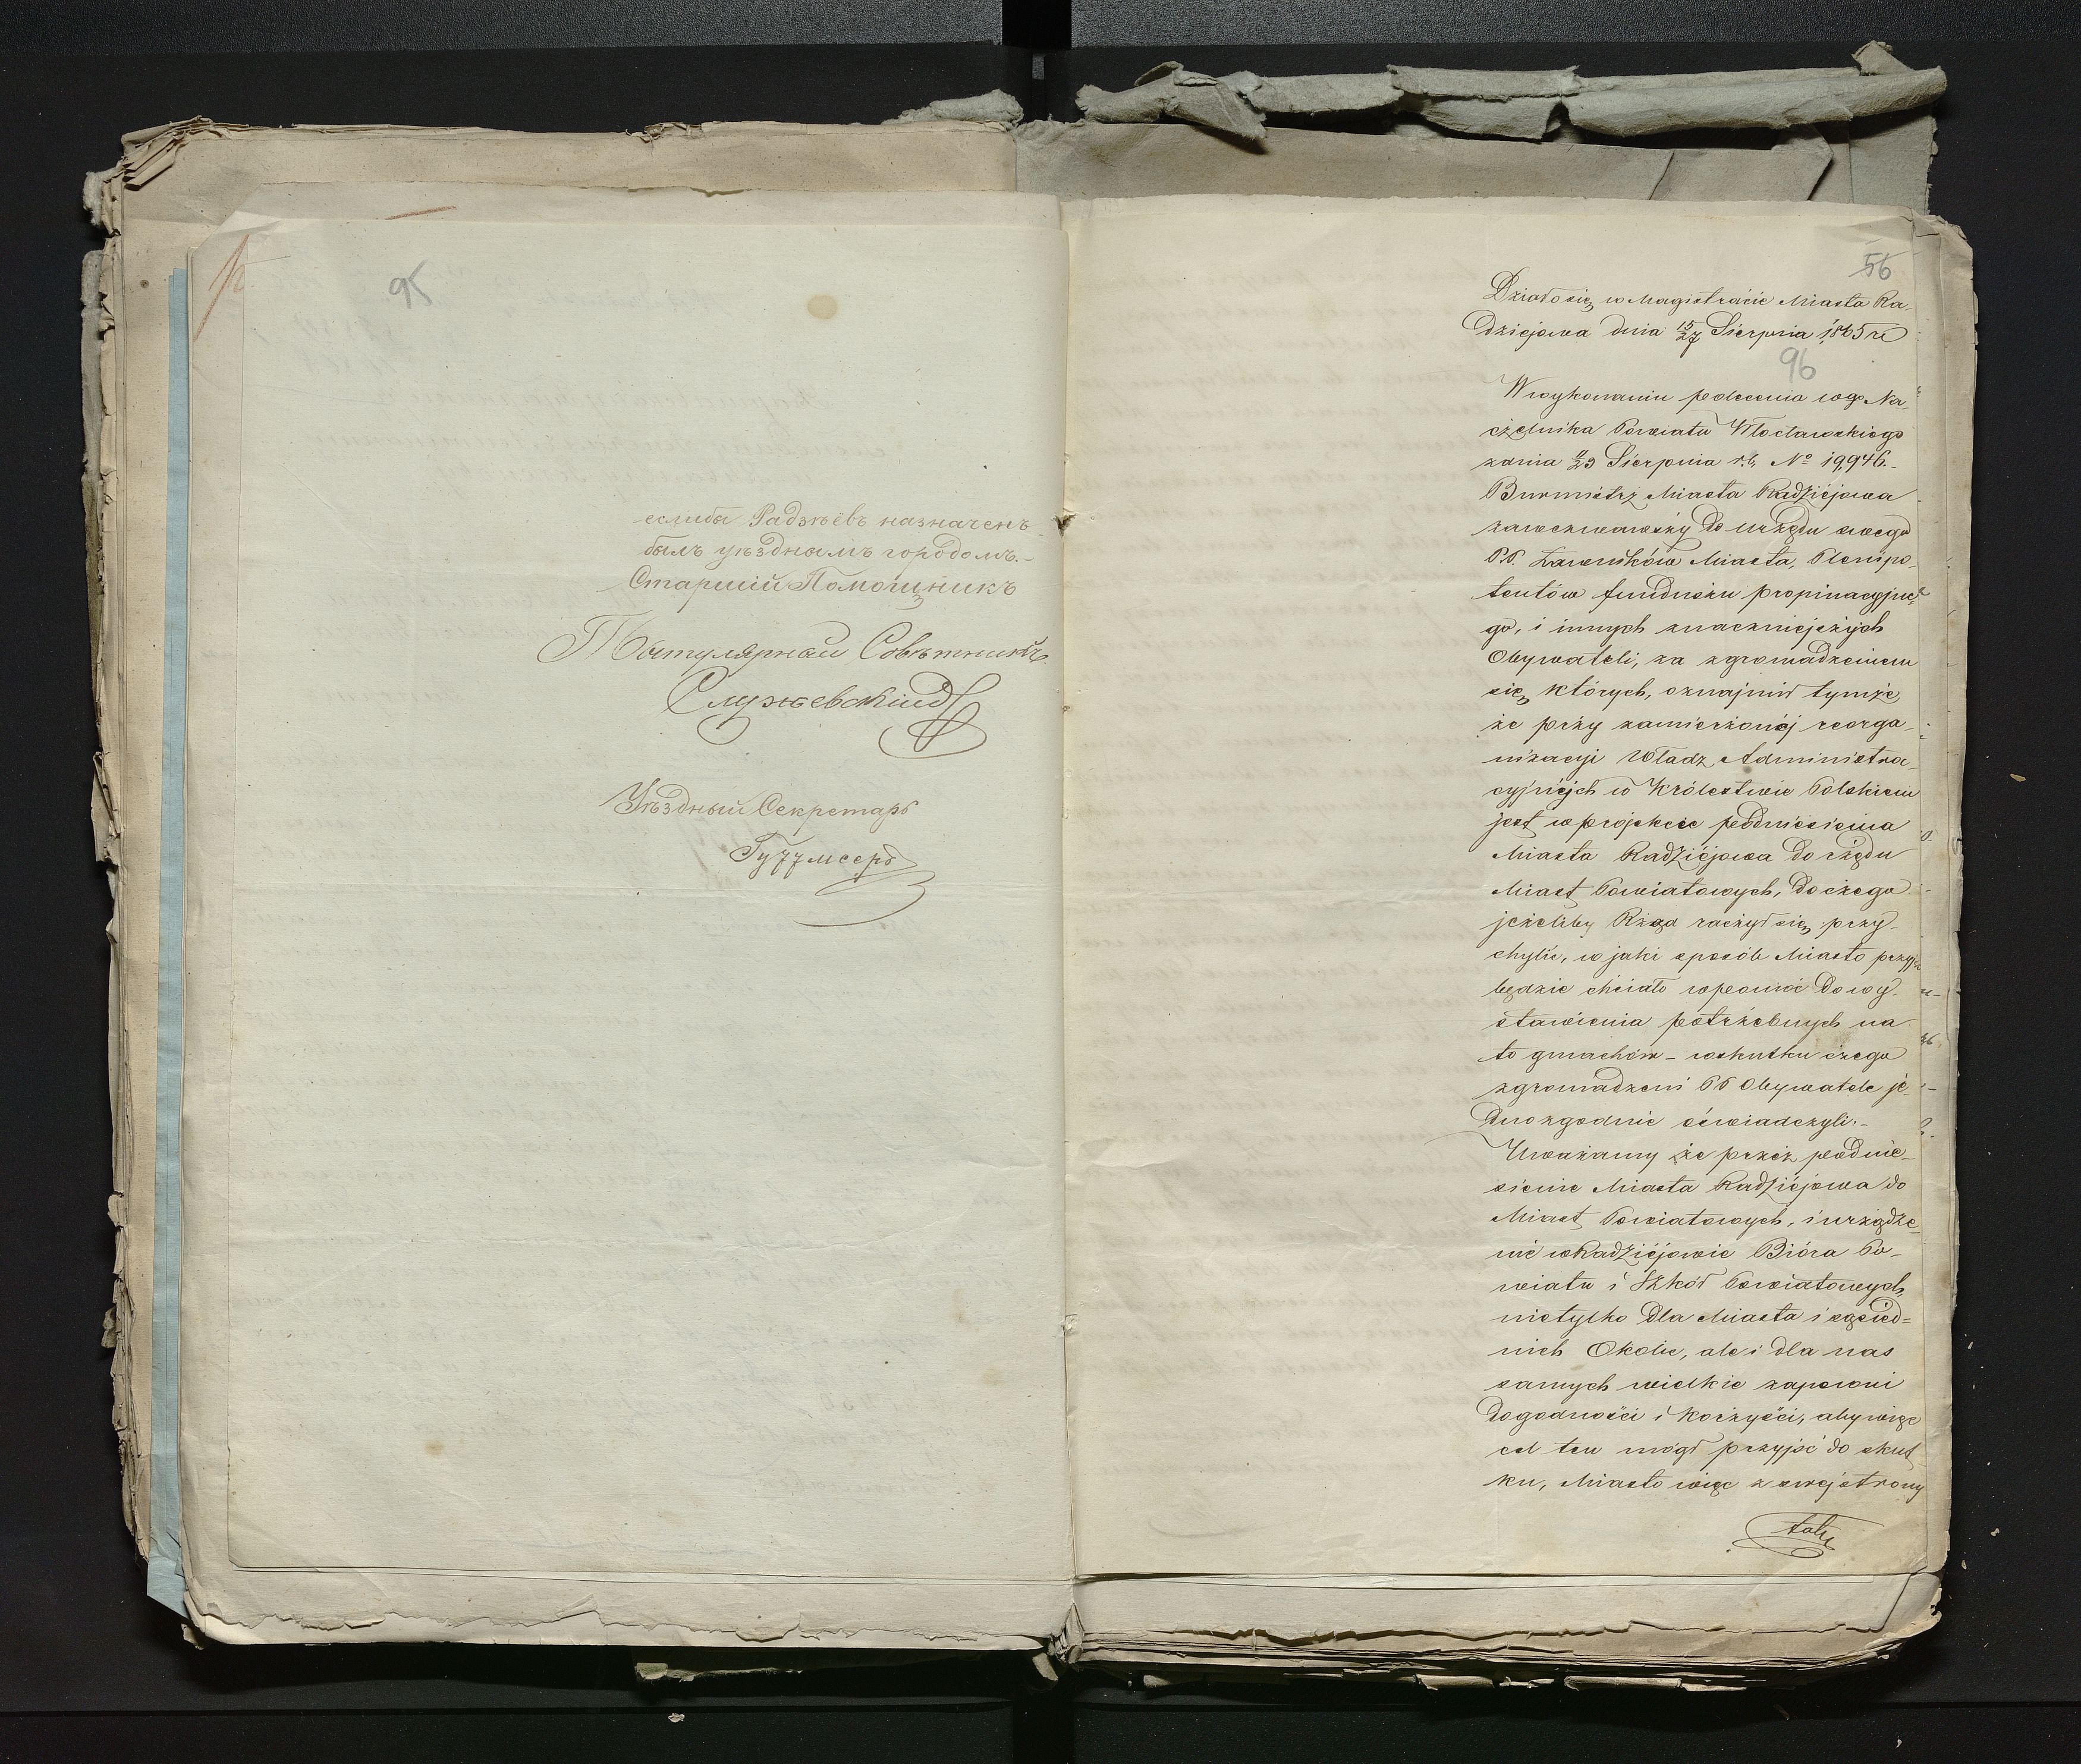 95
еслибы Радзѣёвъ назначенъ
былъ уѣзднымъ городомъ.-
Старшій Помощникъ
Титулярный Совѣтникъ
Служевскій
Уѣздный Секретарь
56
Działo się w Magistracie Miasta Ra-
dziejowa dnia 15/27 Sierpnia 1865 r.
96
W wykonaniu polecenia Wgo Na-
czelnika Powiatu Włocławskiego
z dnia 11/23 Sierpnia r. b. № 19,946.-
Burmistrz Miasta Radziejowa
zawezwawszy do Urzędu swego
PP. Ławników Miasta, Plenipo-
tentów funduszu propinacyjne-
go, i innych znaczniejszych
Obywateli, za zgromadzeniem
się których, oznajmił tymże,
że przy zamierzonej reorga-
nizacyi Władz Administra-
cyjnych w Królestwie Polskiem
jest w projekcie podniesienia
Miasta Radziejowa do rzędu
Miast Powiatowych, do czego
jeżeliby Rząd raczył się przy-
chylić, w jaki sposób Miasto przyjść
będzie chciało w pomoc do wy-
stawienia potrzebnych na
to gmachów - wskutku czego
zgromadzeni PP Obywatele je-
dnozgodnie oświadczyli.-
Uważamy że przez podnie-
sienie Miasta Radziejowa do
Miast Powiatowych, i urządze-
nie w Radziejowie Bióra Po-
wiatu i Szkół Powiatowych,
nietylko dla Miasta i sąsied=
nich Okolic, ale i dla nas
samych wielkie zapewni
dogodności i korzyści, aby więc
cel ten mógł przyjść do skut-
ku, Miasto więc z swej strony